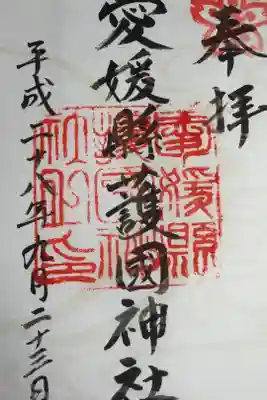 奉拝
愛媛縣護國神社
平成二十八年九月二十三日
愛媛縣
護國神
社宮司印